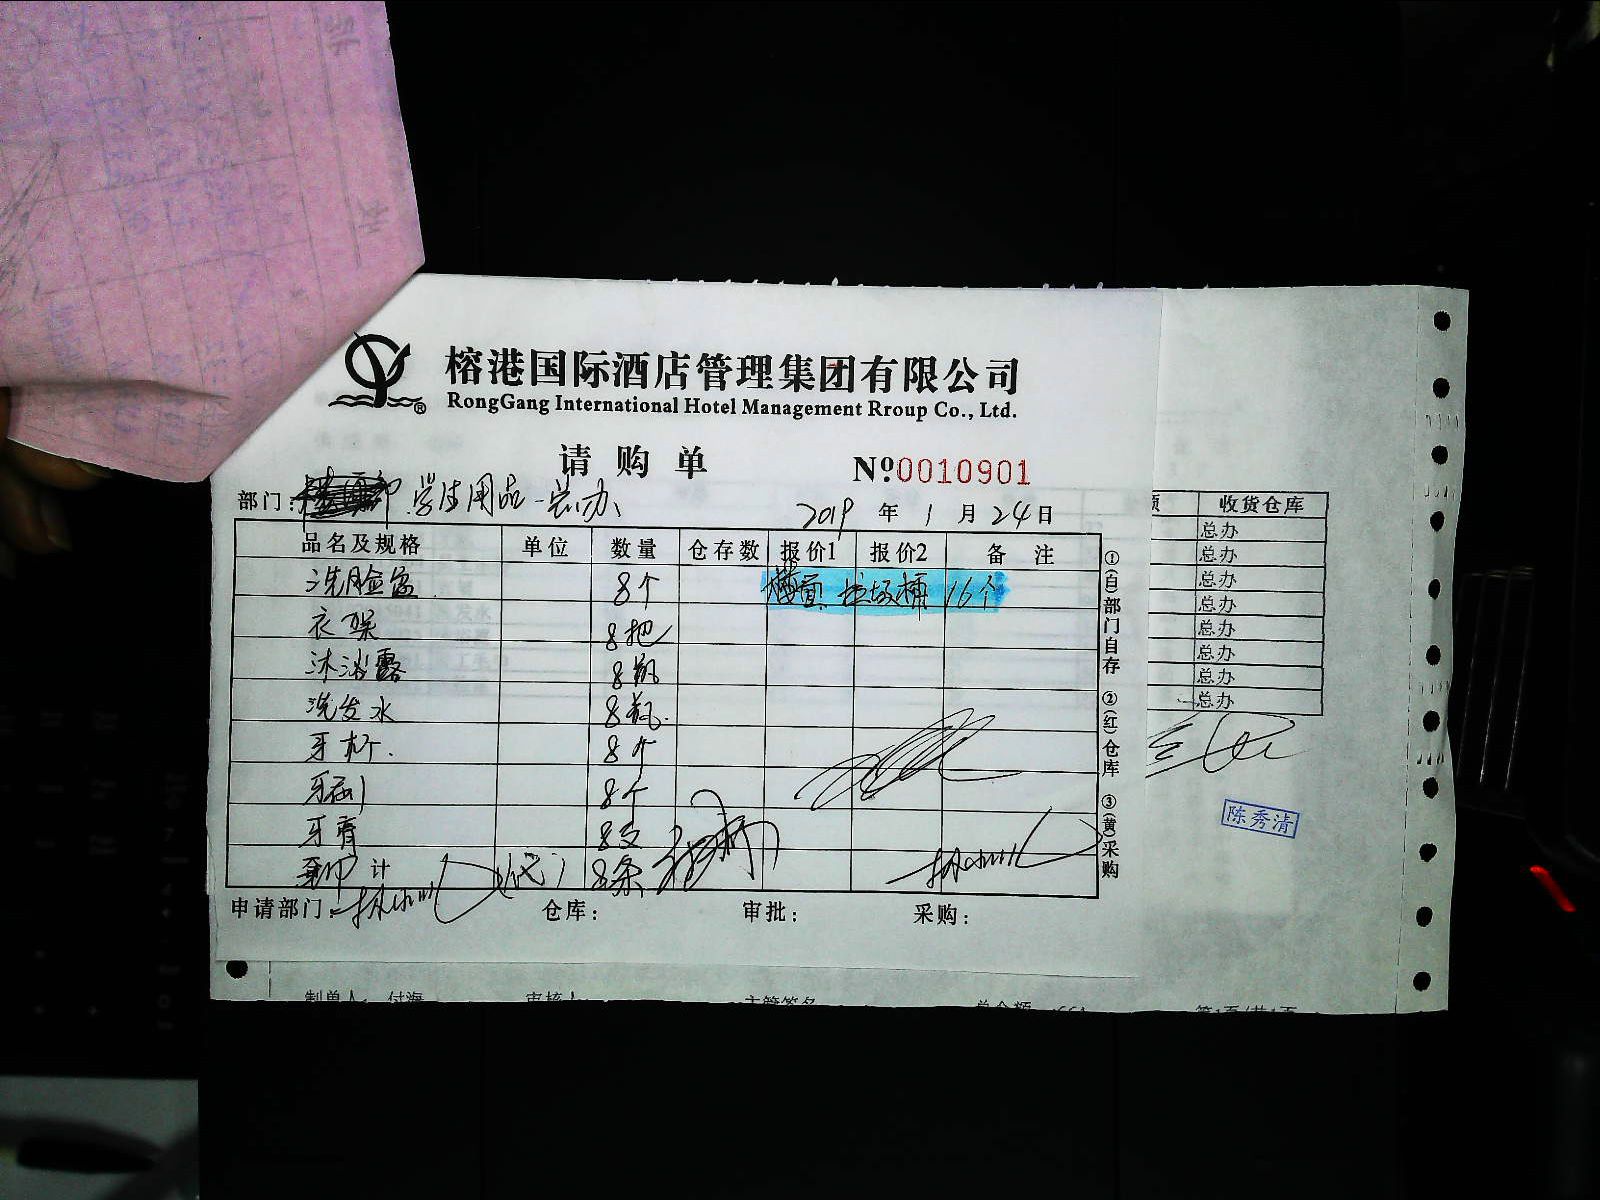 榕港国际酒店管理集团有限公司
RongGang International Hotel Management Rroup Co., Ltd.
请购单 Nº0010901
部门: 学生用品-总办 2019年1月24日
品名及规格 单位 数量 仓存数 报价1 报价2 备注
洗脸盆 8个 楼面 垃圾桶 16个
衣架 8把
沐浴露 8瓶
洗发水 8瓶
牙杯 8个
牙刷 8个
牙膏 8支
计 (代) 8条
申请部门: 仓库: 审批: 采购:
①(白)部门自存 ②(红)仓库 ③(黄)采购
收货仓库
总办
总办
总办
总办
总办
总办
总办
总办
陈秀清
制单人: 付海 审核人 主管签名 总金额 第1页/共1页